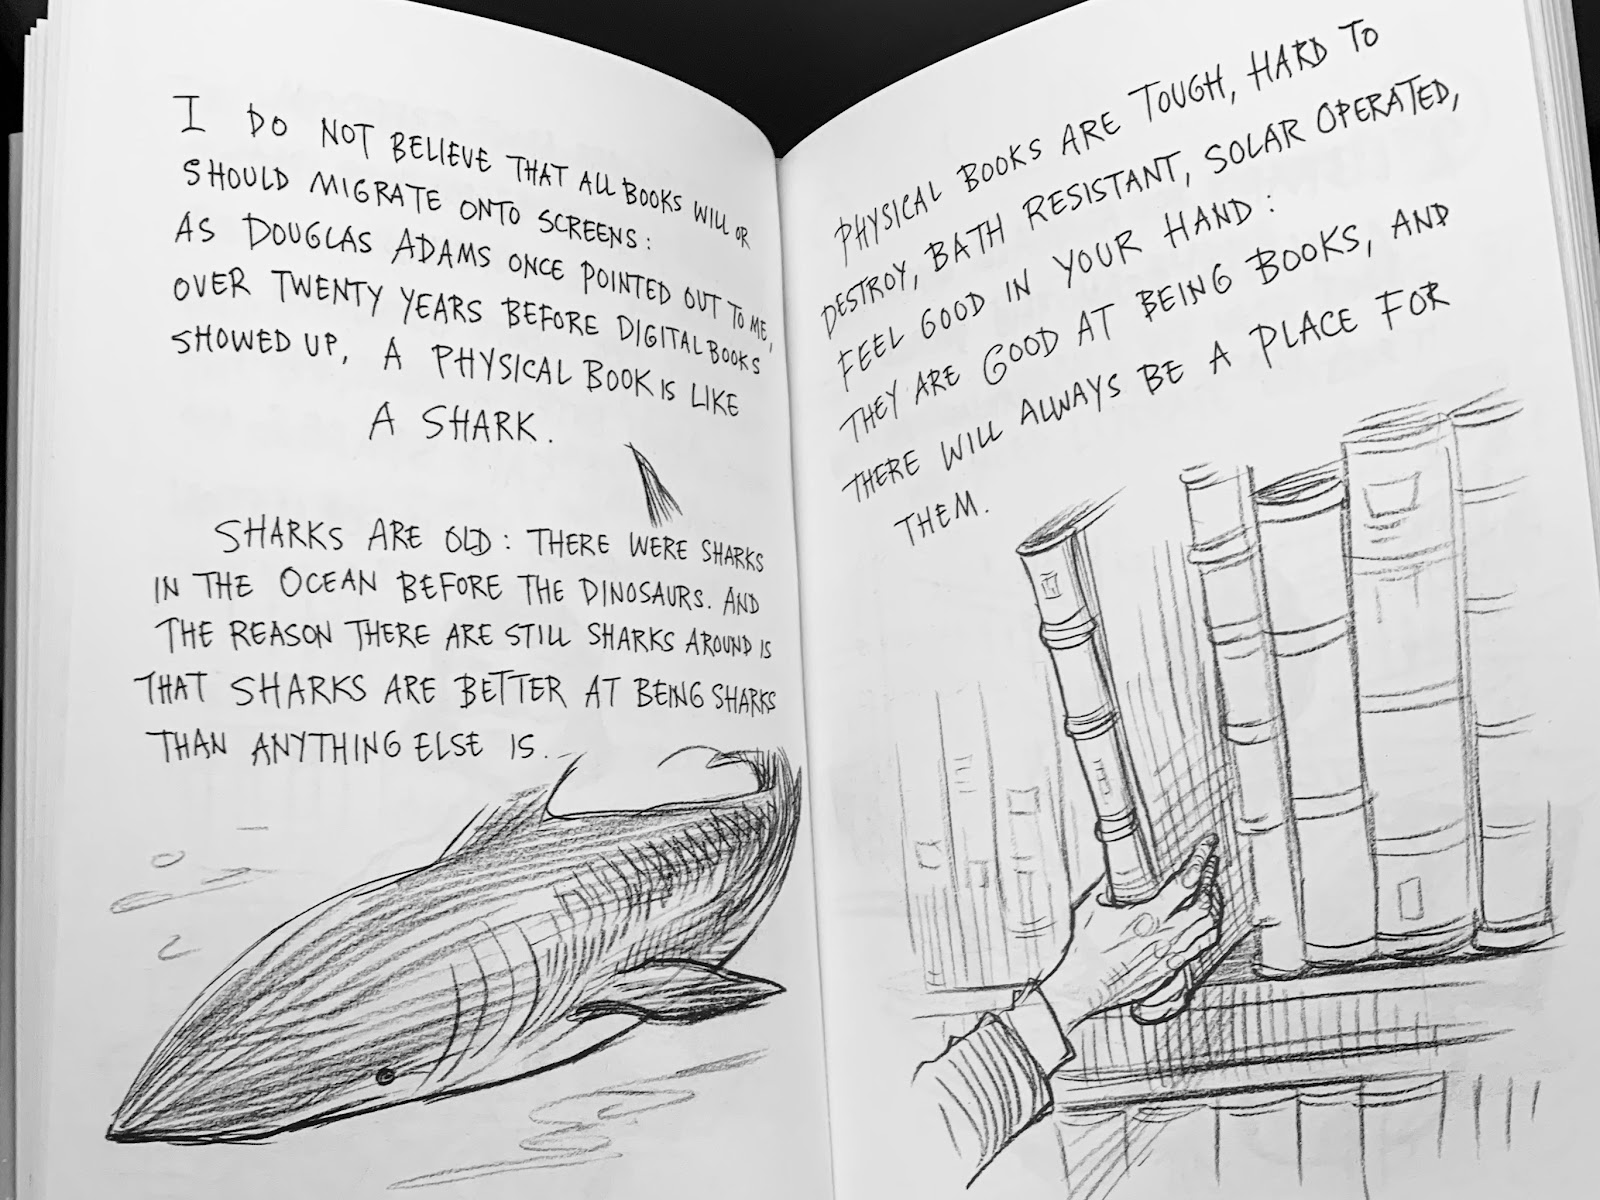 I DO NOT BELIEVE THAT ALL BOOKS WILL OR
SHOULD MIGRATE ONTO SCREENS:
AS DOUGLAS ADAMS ONCE POINTED OUT TO ME,
OVER TWENTY YEARS BEFORE DIGITAL BOOKS
SHOWED UP, A PHYSICAL BOOK IS LIKE
A SHARK.
SHARKS ARE OLD: THERE WERE SHARKS
IN THE OCEAN BEFORE THE DINOSAURS. AND
THE REASON THERE ARE STILL SHARKS AROUND IS
THAT SHARKS ARE BETTER AT BEING SHARKS
THAN ANYTHING ELSE IS.
PHYSICAL BOOKS ARE TOUGH, HARD TO
DESTROY, BATH RESISTANT, SOLAR OPERATED,
FEEL GOOD IN YOUR HAND:
THEY ARE GOOD AT BEING BOOKS, AND
THERE WILL ALWAYS BE A PLACE FOR
THEM.